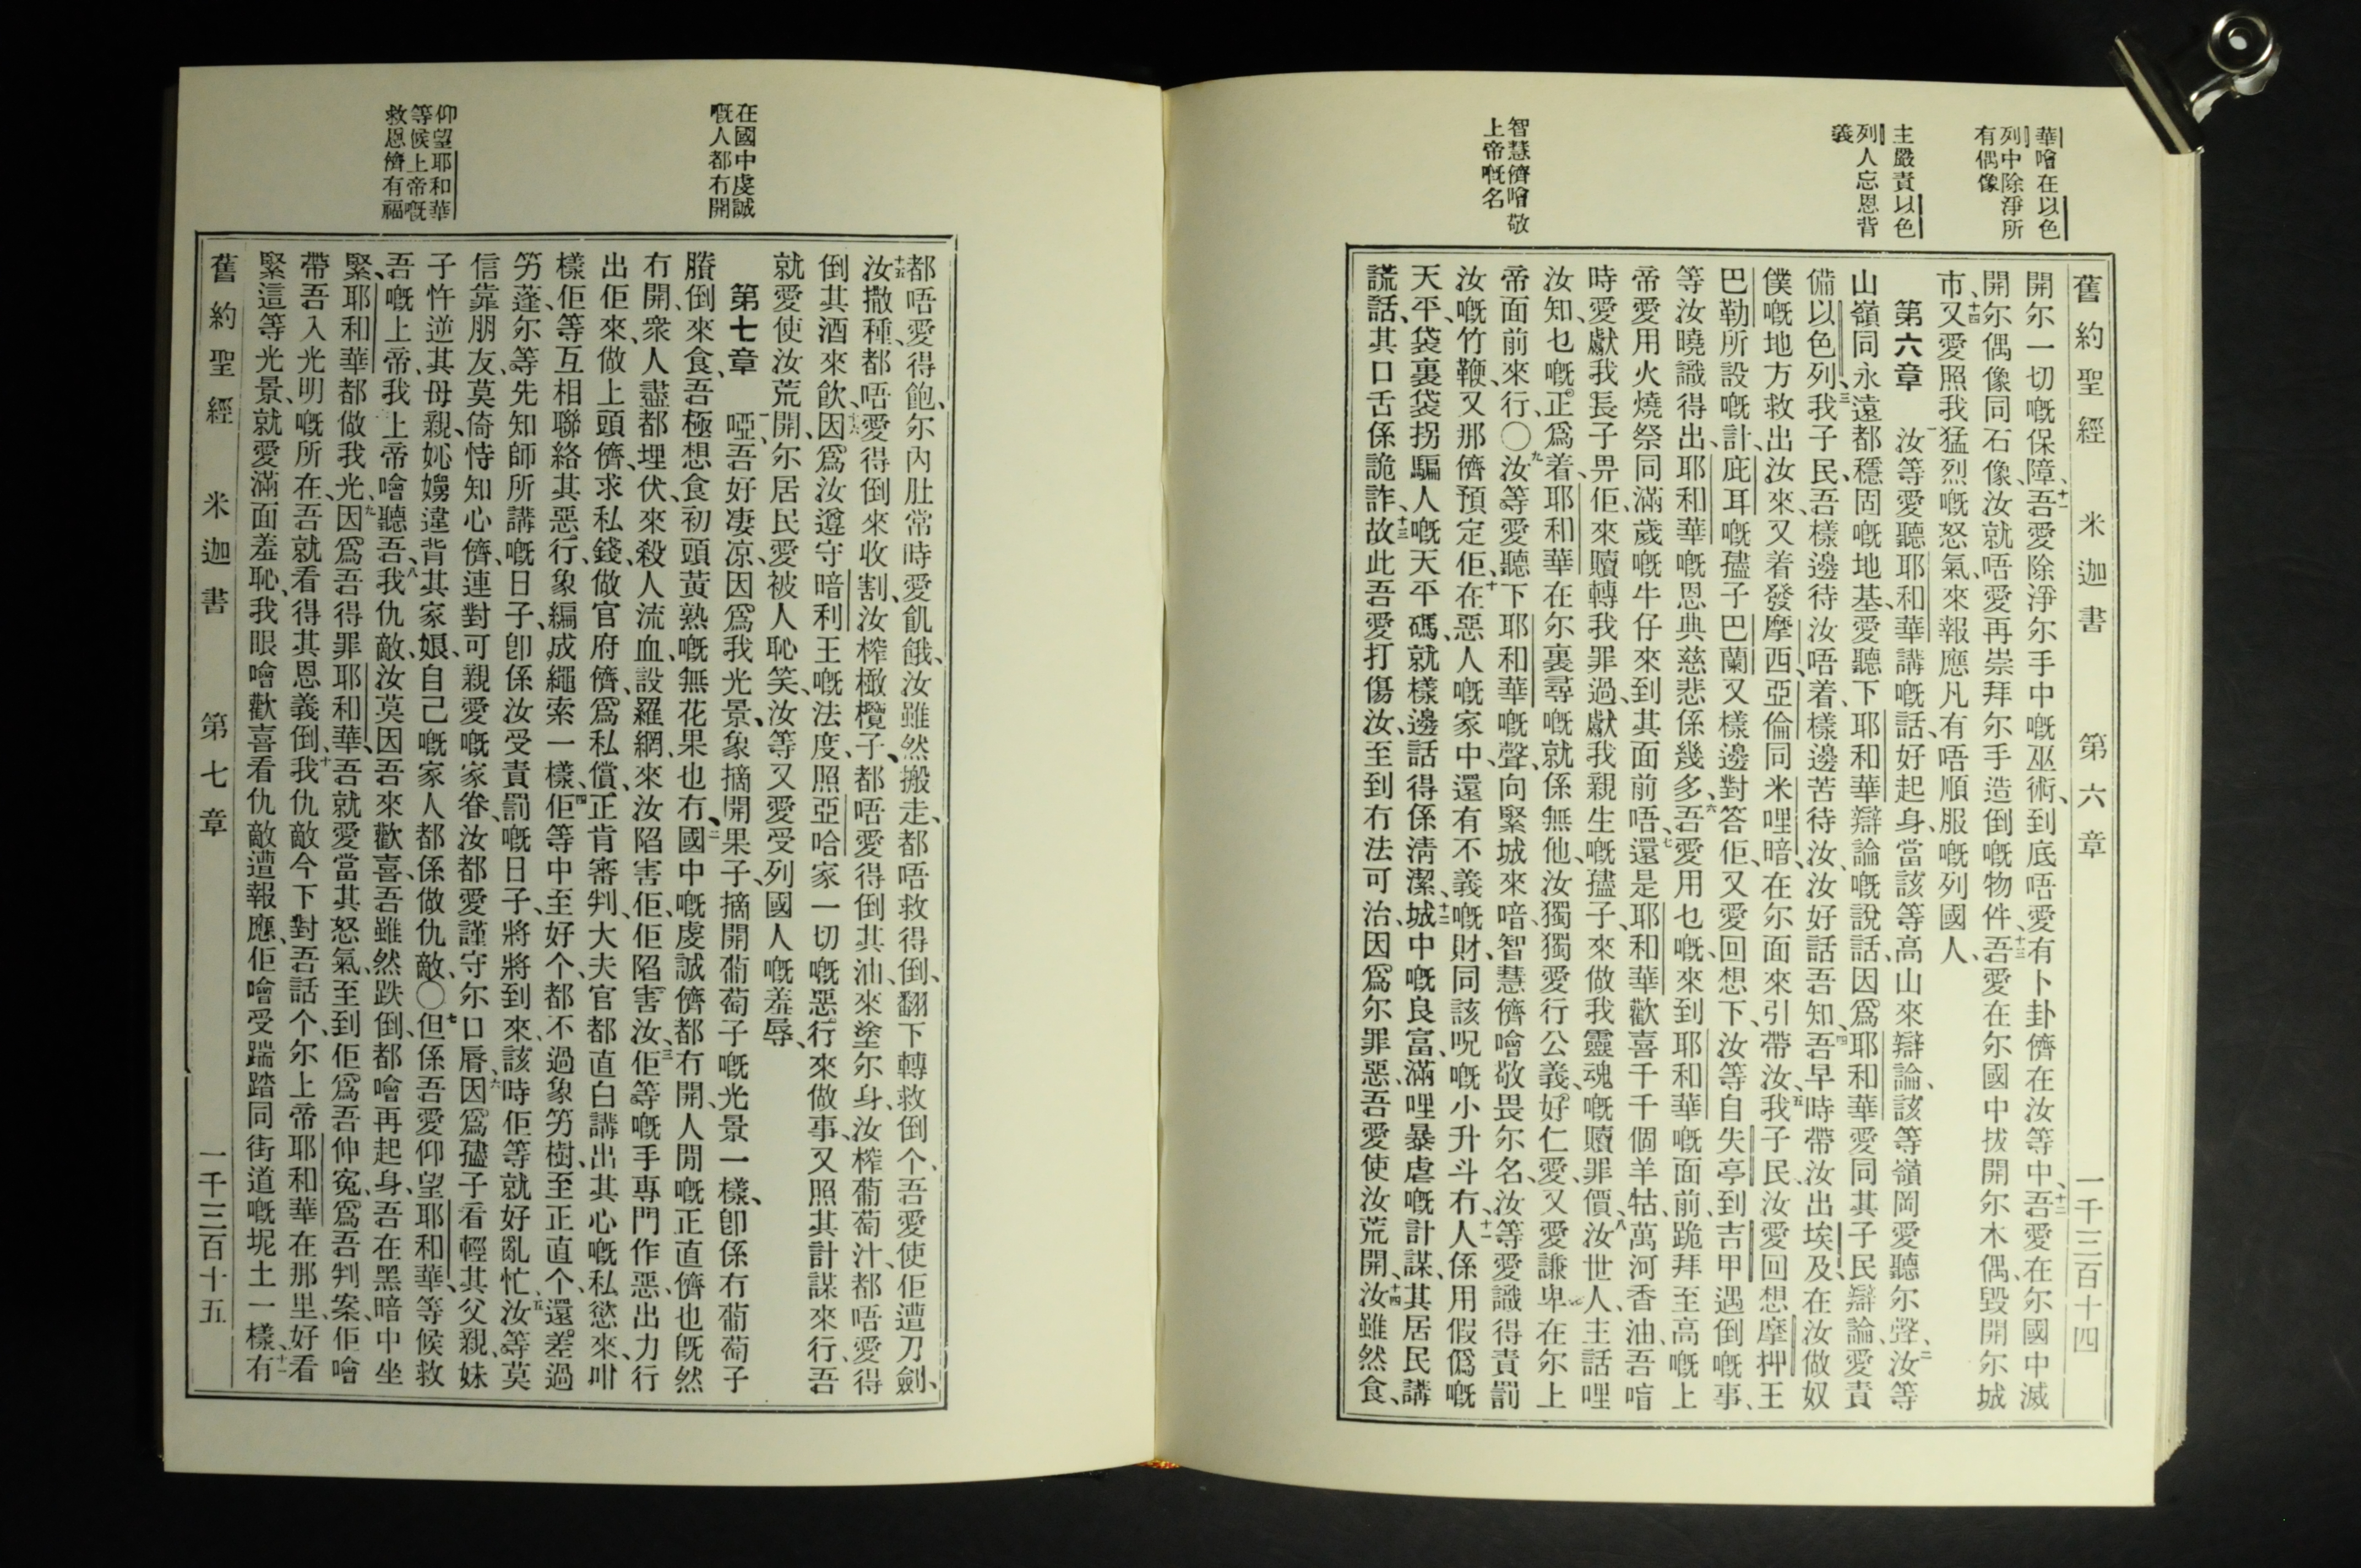 華噲在以色
列中除淨所
有偶像
主嚴責以色
列人忘恩背
義
智慧儕噲敬
上帝嘅名
舊約聖經 米迦書 第六章 一千三百十四
開尔一切嘅保障、十一吾愛除淨尔手中嘅巫術、到底唔愛有卜卦儕在汝等中、十二吾愛在尔國中滅
開尔偶像同石像、汝就唔愛再崇拜尔手造倒嘅物件、十三吾愛在尔國中拔開尔木偶、毀開尔城
市、十四又愛照我猛烈嘅怒氣、來報應凡有唔順服嘅列國人、
第六章 一汝等愛聽耶和華講嘅話、好起身、當該等高山來辯論、該等嶺岡愛聽尔聲、二汝等
山嶺同永遠都穩固嘅地基、愛聽下耶和華辯論嘅說話、因爲耶和華愛同其子民辯論、愛責
備以色列、三我子民、吾樣邊待汝唔着、樣邊苦待汝、汝好話吾知、四吾早時帶汝出埃及、在汝做奴
僕嘅地方救出汝來、又着發摩西、亞倫同米哩暗、在尔面來引帶汝、五我子民、汝愛回想摩押王
巴勒所設嘅計、庇耳嘅孻子巴蘭又樣邊對答佢、又愛回想下、汝等自失亭到吉甲遇倒嘅事、
等汝曉識得出、耶和華嘅恩典慈悲係幾多、六吾愛用乜嘅、來到耶和華嘅面前、跪拜至高嘅上
帝、愛用火燒祭同滿歲嘅牛仔來到其面前唔、七還是耶和華歡喜千千個羊牯、萬河香油、吾㖔
時愛獻我長子畀佢、來贖轉我罪過、獻我親生嘅孻子、來做我靈魂嘅贖罪價、八汝世人、主話哩
汝知、乜嘅正爲着、耶和華在尔裏尋嘅、就係無他、汝獨獨愛行公義、好仁愛、又愛謙卑、在尔上
帝面前來行、〇九汝等愛聽下耶和華嘅聲、向緊城來喑、智慧儕噲敬畏尔名、汝等愛識得責罰
汝嘅竹鞭、又那儕預定佢、十在惡人嘅家中、還有不義嘅財、同該呪嘅小升斗冇、十一人係用假僞嘅
天平、袋裏袋拐騙人嘅天平碼、就樣邊話得係淸潔、十二城中嘅良富、滿哩暴虐嘅計謀、其居民講
謊話、其口舌係詭詐、十三故此吾愛打傷汝、至到冇法可治、因爲尔罪惡、吾愛使汝荒開、十四汝雖然食、
在國中虔誠
嘅人都冇開
仰望耶和華
等候上帝嘅
救恩儕有福
都唔愛得飽、尔內肚常時愛飢餓、汝雖然搬走、都唔救得倒、翻下轉救倒个、吾愛使佢遭刀劍、
十五汝撒種、都唔愛得倒來收割、汝榨橄欖子、都唔愛得倒其油、來塗尔身、汝榨葡萄汁、都唔愛得
倒其酒來飮、十六因爲汝遵守暗利王嘅法度、照亞哈家一切嘅惡行來做事、又照其計謀來行、吾
就愛使汝荒開、尔居民愛被人恥笑、汝等又愛受列國人嘅羞辱、
第七章 一啞、吾好凄凉、因爲我光景、象摘開果子、摘開葡萄子嘅光景一樣、卽係冇葡萄子
賸倒來食、吾極想食初頭黃熟嘅無花果也冇、二國中嘅虔誠儕都冇開、人間嘅正直儕也旣然
冇開、衆人盡都埋伏、來殺人流血、設羅網、來汝陷害佢、佢陷害汝、三佢等嘅手專門作惡、出力行
出佢來、做上頭儕、求私錢、做官府儕、爲私償、正肯審判、大夫官都直白講出其心嘅私慾來、咁
樣佢等互相聯絡其惡行、象編成繩索一樣、四佢等中至好个、都不過象竻樹、至正直个、還差過
竻蓬、尔等先知師所講嘅日子、卽係汝受責罰嘅日子、將將到來、該時佢等就好亂忙、五汝等莫
信靠朋友、莫倚恃知心儕、連對可親愛嘅家眷、汝都愛謹守尔口脣、六因爲孻子看輕其父親、妹
子忤逆其母親、妣嫋違背其家娘、自己嘅家人都係做仇敵、〇七但係吾愛仰望耶和華、等候救
吾嘅上帝、我上帝噲聽吾、八我仇敵、汝莫因吾來歡喜、吾雖然跌倒、都噲再起身、吾在黑暗中坐
緊、耶和華都做我光、九因爲吾得罪耶和華、吾就愛當其怒氣、至到佢爲吾伸寃、爲吾判案、佢噲
帶吾入光明嘅所在、吾就看得其恩義倒、十我仇敵今下對吾話个、尔上帝耶和華在那里、好看
緊這等光景、就愛滿面羞恥、我眼噲歡喜看仇敵遭報應、佢噲受踹踏同街道嘅坭土一樣、十一有
舊約聖經 米迦書 第七章 一千三百十五